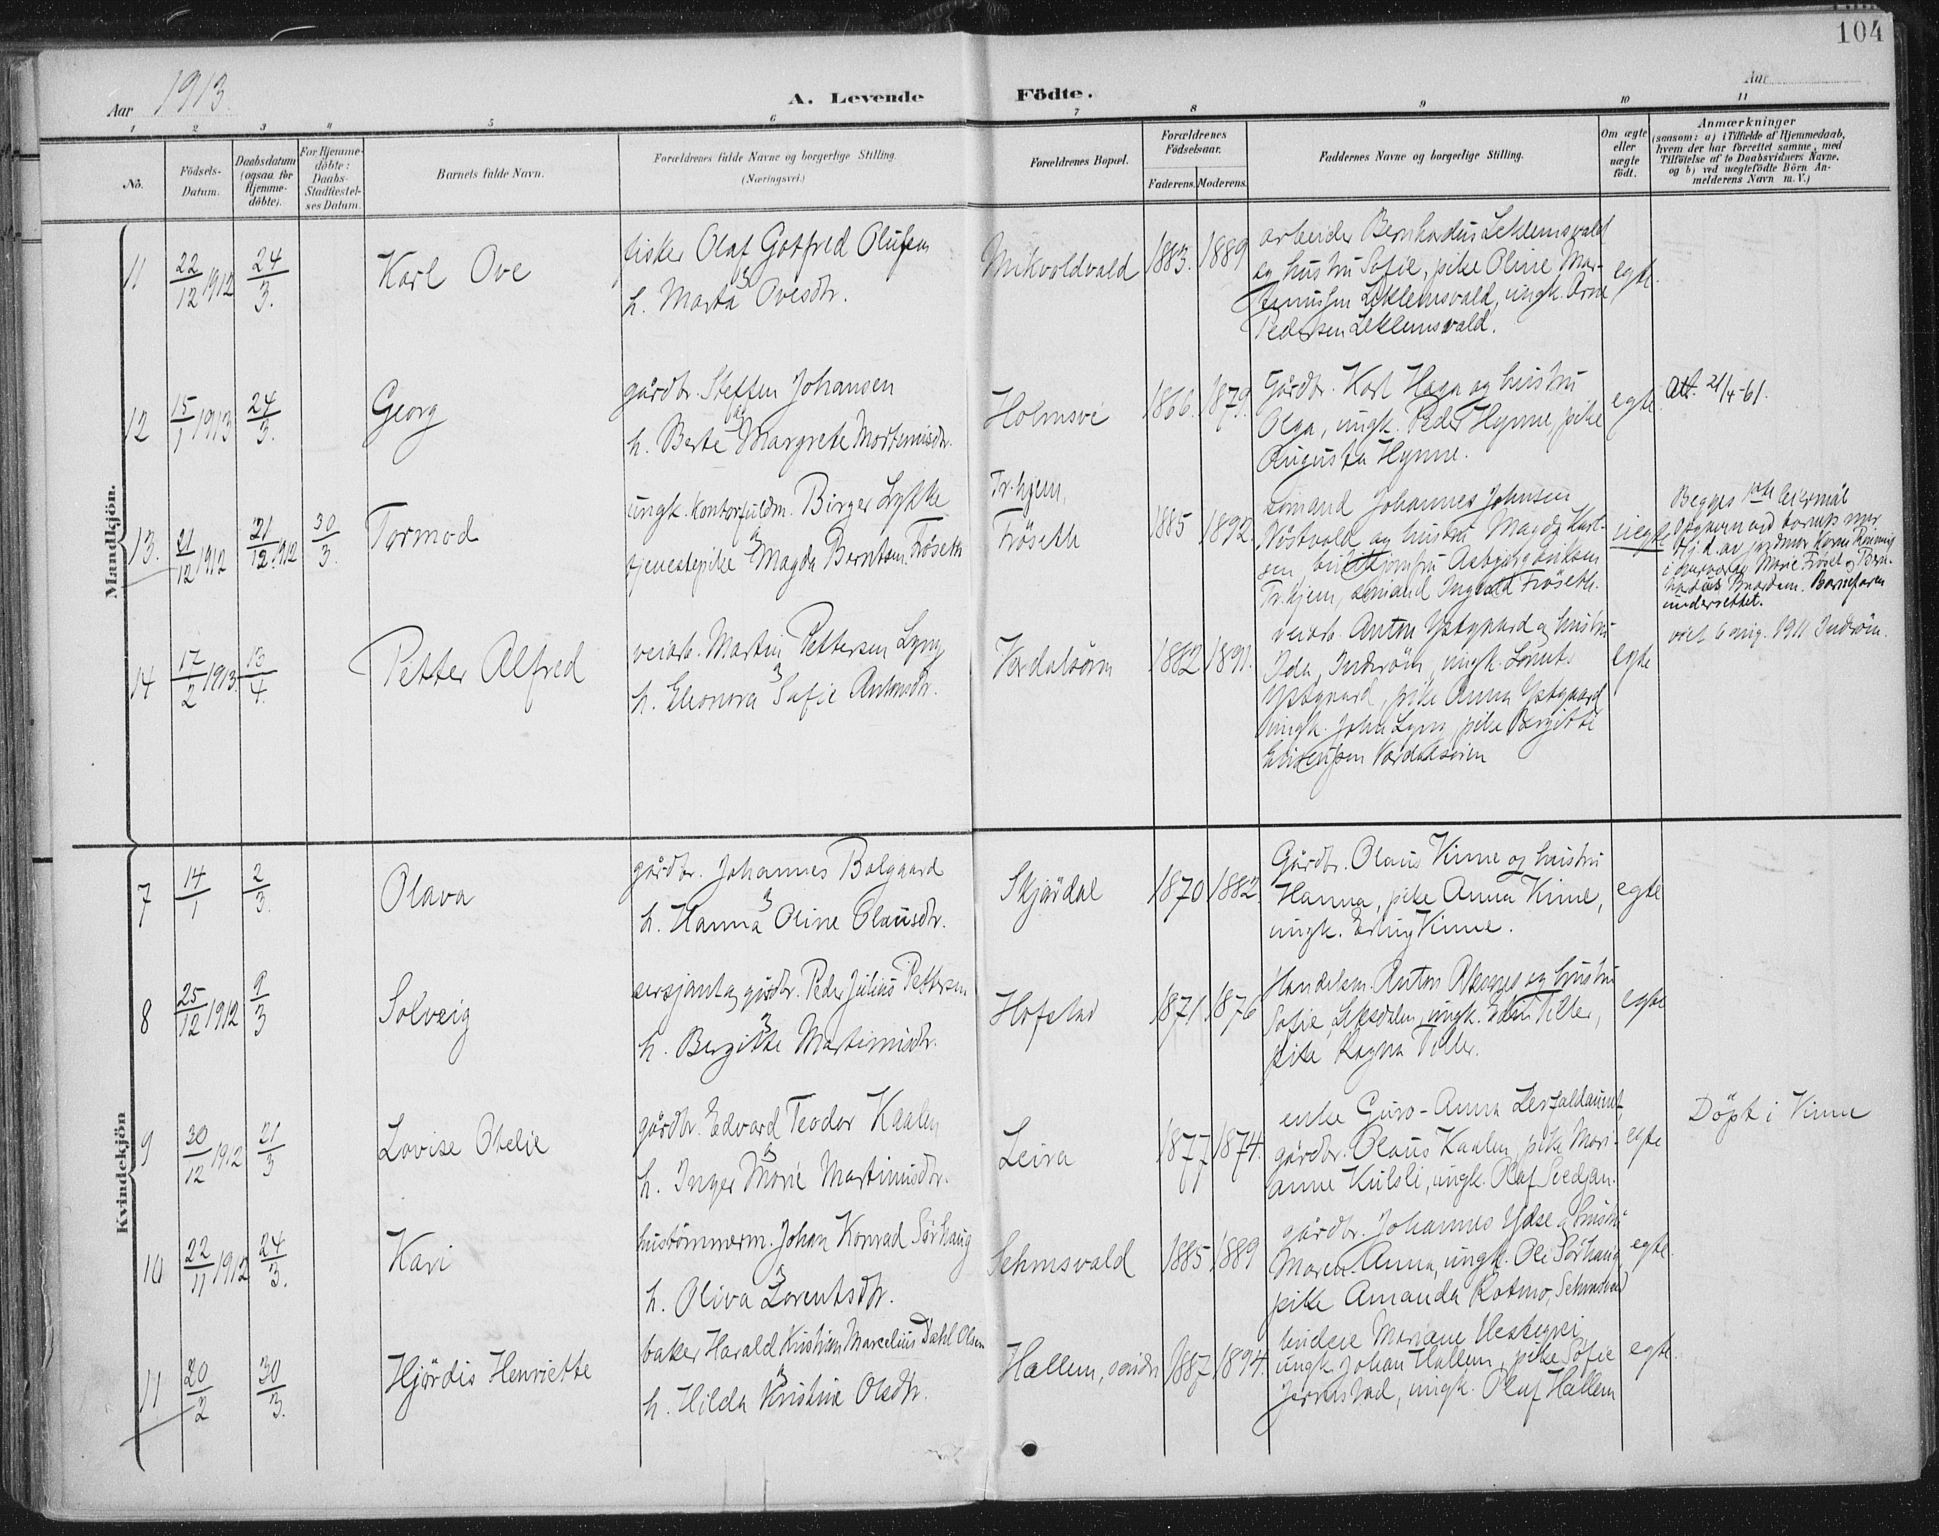 104
Aar 1913.
A. Levende Födte.
Aar
1 2 3 4 5 6 7 8 9 10 11
No.
Födsels-Datum.
Daabsdatum (ogsaa for Hjemme-döbte).
For Hjemme-döbte: Daabs-Stadfæstel-ses Datum.
Barnets fulde Navn.
Forældrenes fulde Navne og borgerlige Stilling.
(Næringsvei.)
Forældrenes Bopæl.
Forældrenes Födselsaar.
Faderens. Moderens.
Faddernes Navne og borgerlige Stilling.
Om ægte eller uægte födt.
Anmærkninger
(saasom: a) i Tilfælde af Hjemmedaab,
hvem der har forrettet samme, med
Tilföielse af to Daabsvidners Navne,
og b) ved uægtefödte Börn An-
melderens Navn m. V.)
Mandkjön.
11 22/12 1912 24/3. Karl Ove
fisker Olaf Gotfred Olufsen
h. Marta Ovesdtr.
Mikvoldvald 1883. 1889
arbeider Bernhardus Leklemsvald
og hustru Sofie, pike Oline Mar-
Leklemsvald, ungk. Arne
Pedersen Leklemsvald.
egte.
12 15/1 1913 24/3. Georg
gårdbr. Steffen Johansen
og
h. Berte Margrete Mortinusdtr.
Holmsve 1866. 1879.
Gårdbr. Karl Haga og hustru
Olga, ungk. Peder Hynne, pike
Augusta Hynne.
egte
Att. 21/4-61.
13. 21/12 1912 21/12 1912 30/3. Tormod
ungk. kontorfuldm. Birger Lykke
tjenestepike Magda Berntsen Fröseth
Tr.hjem,
Fröseth
1885 1892.
sömand Johannes Johnsen
Nöstvald og hustru Magda
Tr.hjem, sömand Ingvald Fröseth.
uegte
Begges 1ste leiermål
i overvær av Marie Fröset og
Barnefaren
underrettet.
14 17/2 1913. 13/4. Petter Alfred
veiarb. Martin Pettersen Lyng
h. Eleonora Sofie Antonsdtr.
Verdalsörn 1882 1891.
veiarb. Anton Ystgaard og hustru
Ida, Inderöen, ungk. Lorents
Ystgaard, pike Anna Ystgaard
ungk. Johan Lyng, pike Bergitte
Verdalsören
egte
viet 6 aug. 1911 Inderöen.
Kvindekjön
7 14/1 2/3. Olava
gårdbr. Johannes Balgaard
h. Hanna Oline Olausdtr.
Skjördal 1870 1882.
Gårdbr. Olaus Vinne og hustru
Hanna, pike Anna Vinne,
ungk. Erling Vinne.
egte
8 25/12 1912 9/3 Solveig
sersjant og gårdbr. Peder Julius Pettersen
h. Bergitte Martinusdtr.
Hofstad 1871 1876
Handelsm. Anton og hustru
Sofie, Leksdalen, ungk. Tiller,
pike Ragna Tiller.
egte
9 30/12 1912 21/3 Lovise Otelie
gårdbr. Edvard Teodor Kaalen
h. Inger Marie Martinusdtr.
Leira 1877 1874.
enke Guro-Anna
gårdbr. Olaus Kaalen, pike Mari-
anne Kulsli, ungk. Olaf
egte
Döpt i Vinne
10 22/11 1912 24/3. Kari
hustömmerm. Johan Konrad Sörhaug
h. Oliva Lorentsdtr.
Sehmsvald 1885 1889
gårdbr. Johannes Ydse og hustru
Maren-Anna, ungk. Ole Sörhaug,
pike Amanda Rotmo, Sehmsvald
egte.
11 20/2 30/3. Hjördis Henriette
baker Harald Kristian Marcelius Dahl Olsen
h. Hilda Kristine Olsdtr.
Hallem, söndre 1887 1894.
ungk. Johan Hallem, pike Sofie
ungk. Oluf Hallem
egte.